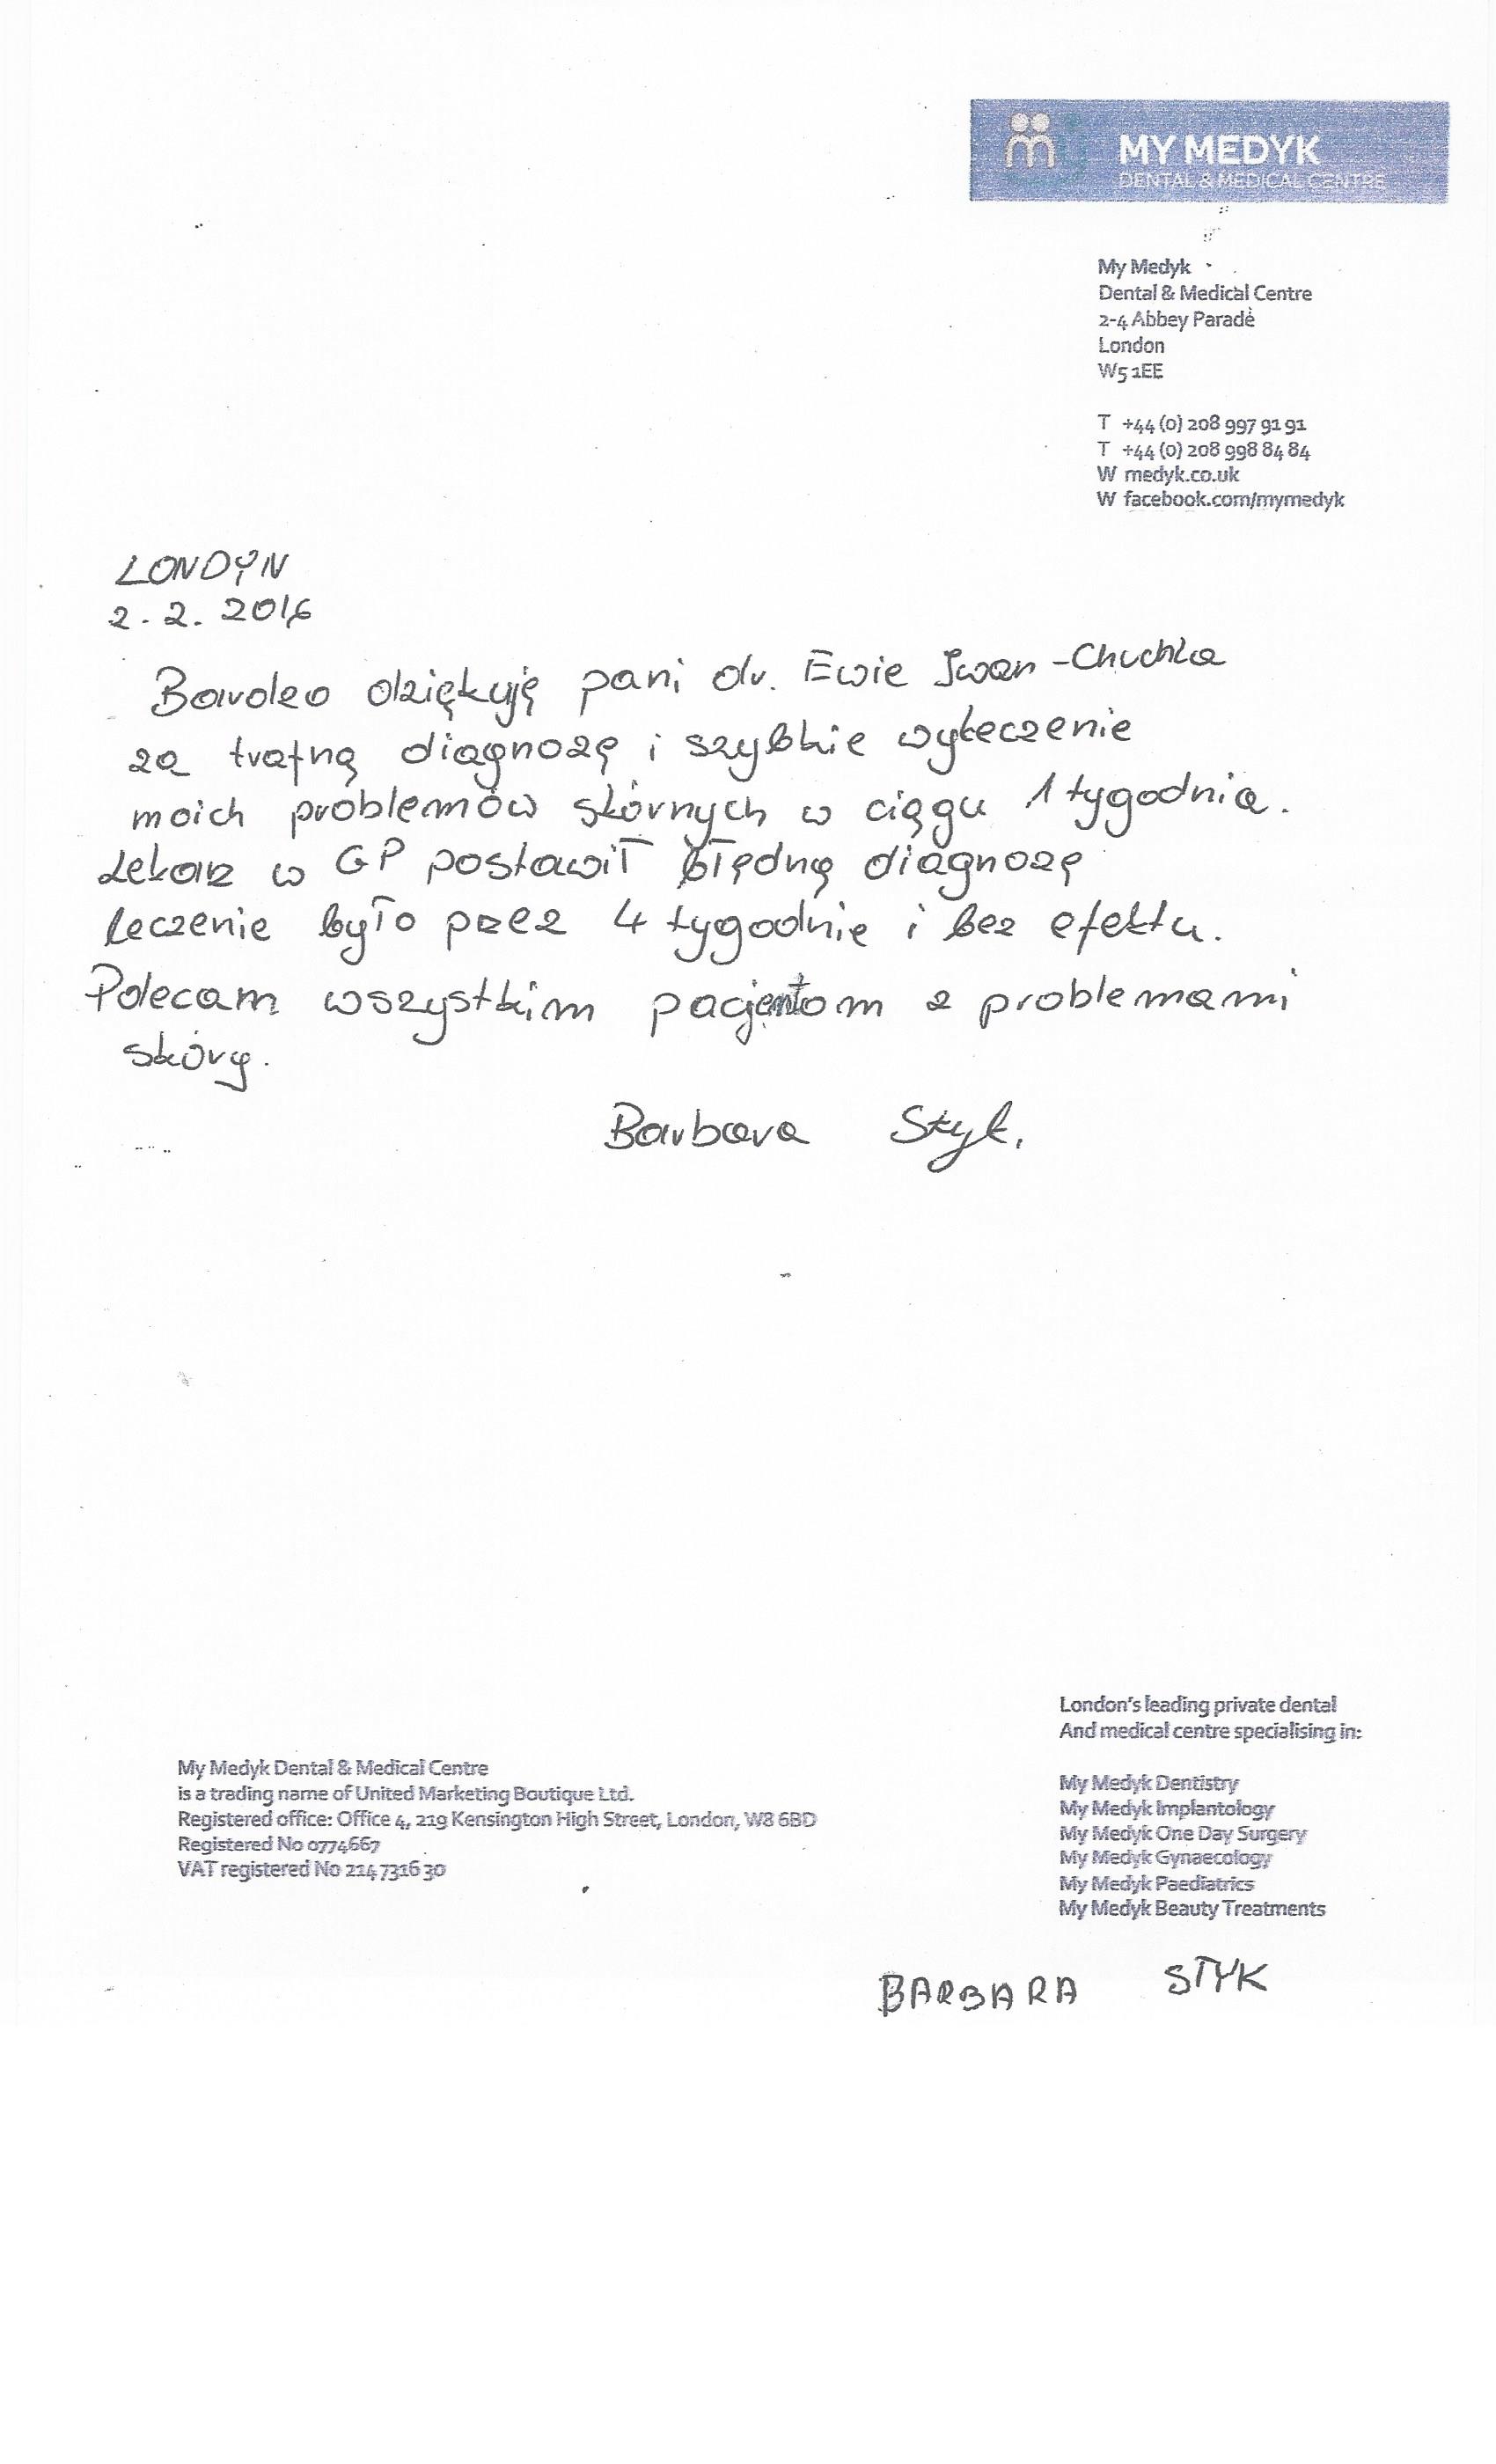 MY MEDYK
DENTAL & MEDICAL CENTRE
My Medyk
Dental & Medical Centre
2-4 Abbey Parade
London
W5 1EE
T +44 (0) 208 997 91 91
T +44 (0) 208 998 84 84
W medyk.co.uk
W facebook.com/mymedyk
LONDYN
2.2.2016
Bardzo dziękuję pani dr. Ewie Iwan-Chuchla
za trafną diagnozę i szybkie wyleczenie
moich problemów skórnych w ciągu 1 tygodnia.
Lekarz w GP postawił błędną diagnozę
leczenie było przez 4 tygodnie i bez efektu.
Polecam wszystkim pacjentom z problemami
skóry.
Barbara Styk.
London's leading private dental
And medical centre specialising in:
My Medyk Dentistry
My Medyk Implantology
My Medyk One Day Surgery
My Medyk Gynaecology
My Medyk Paediatrics
My Medyk Beauty Treatments
My Medyk Dental & Medical Centre
is a trading name of United Marketing Boutique Ltd.
Registered office: Office 4, 219 Kensington High Street, London, W8 6BD
Registered No 0774667
VAT registered No 214 7316 30
BARBARA STYK